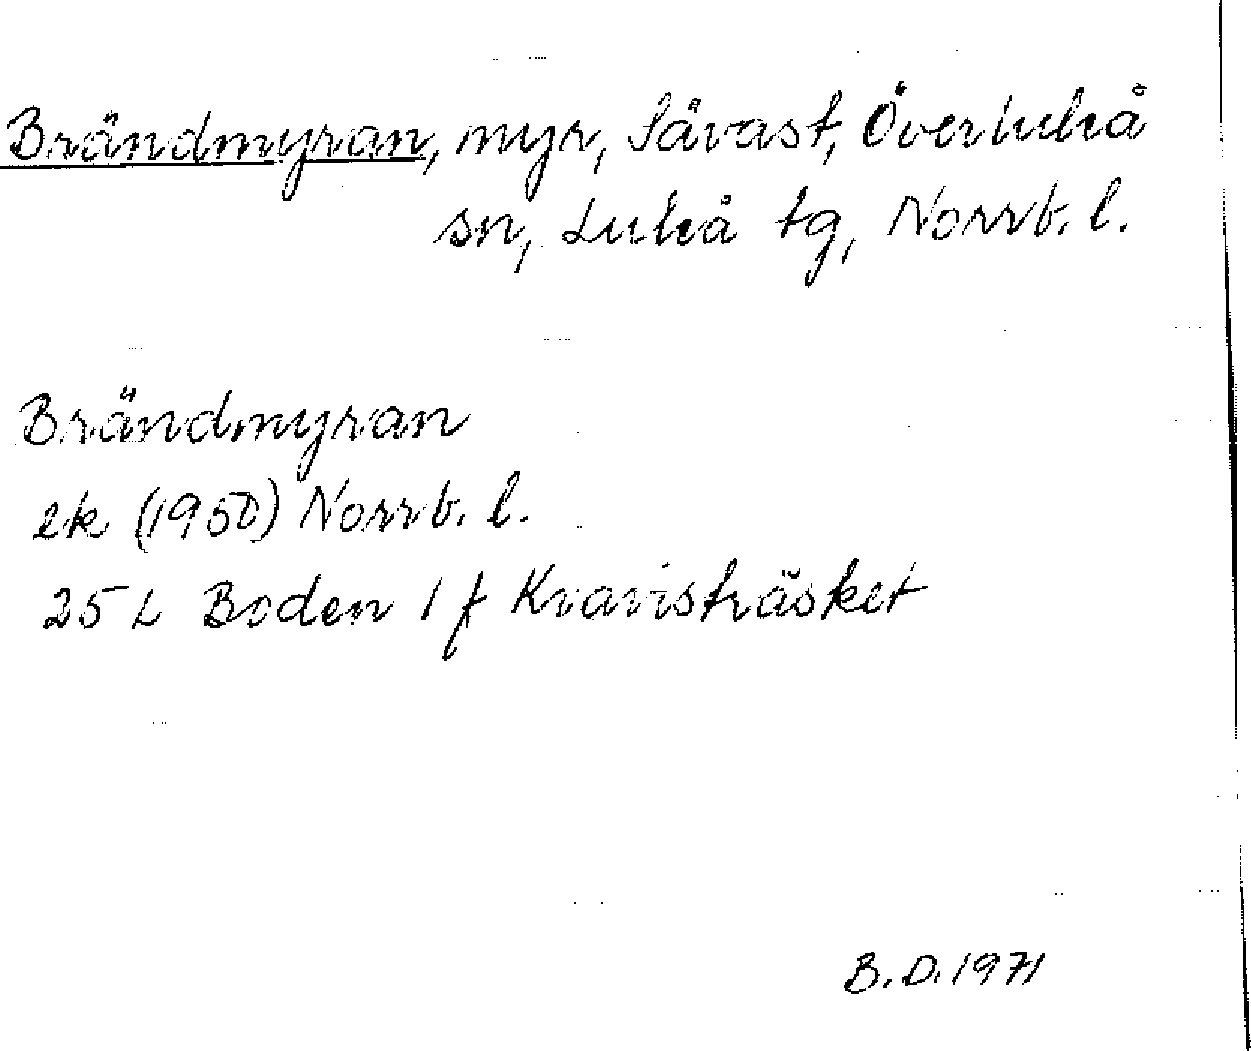 Brändmyran, myr, Sävast, Överluleå
sn, Luleå tg, Norrb. l.
Brändmyran
ek (1950) Norrb. l.
25 L Boden 1 f Kvavisträsket
B.D. 1971